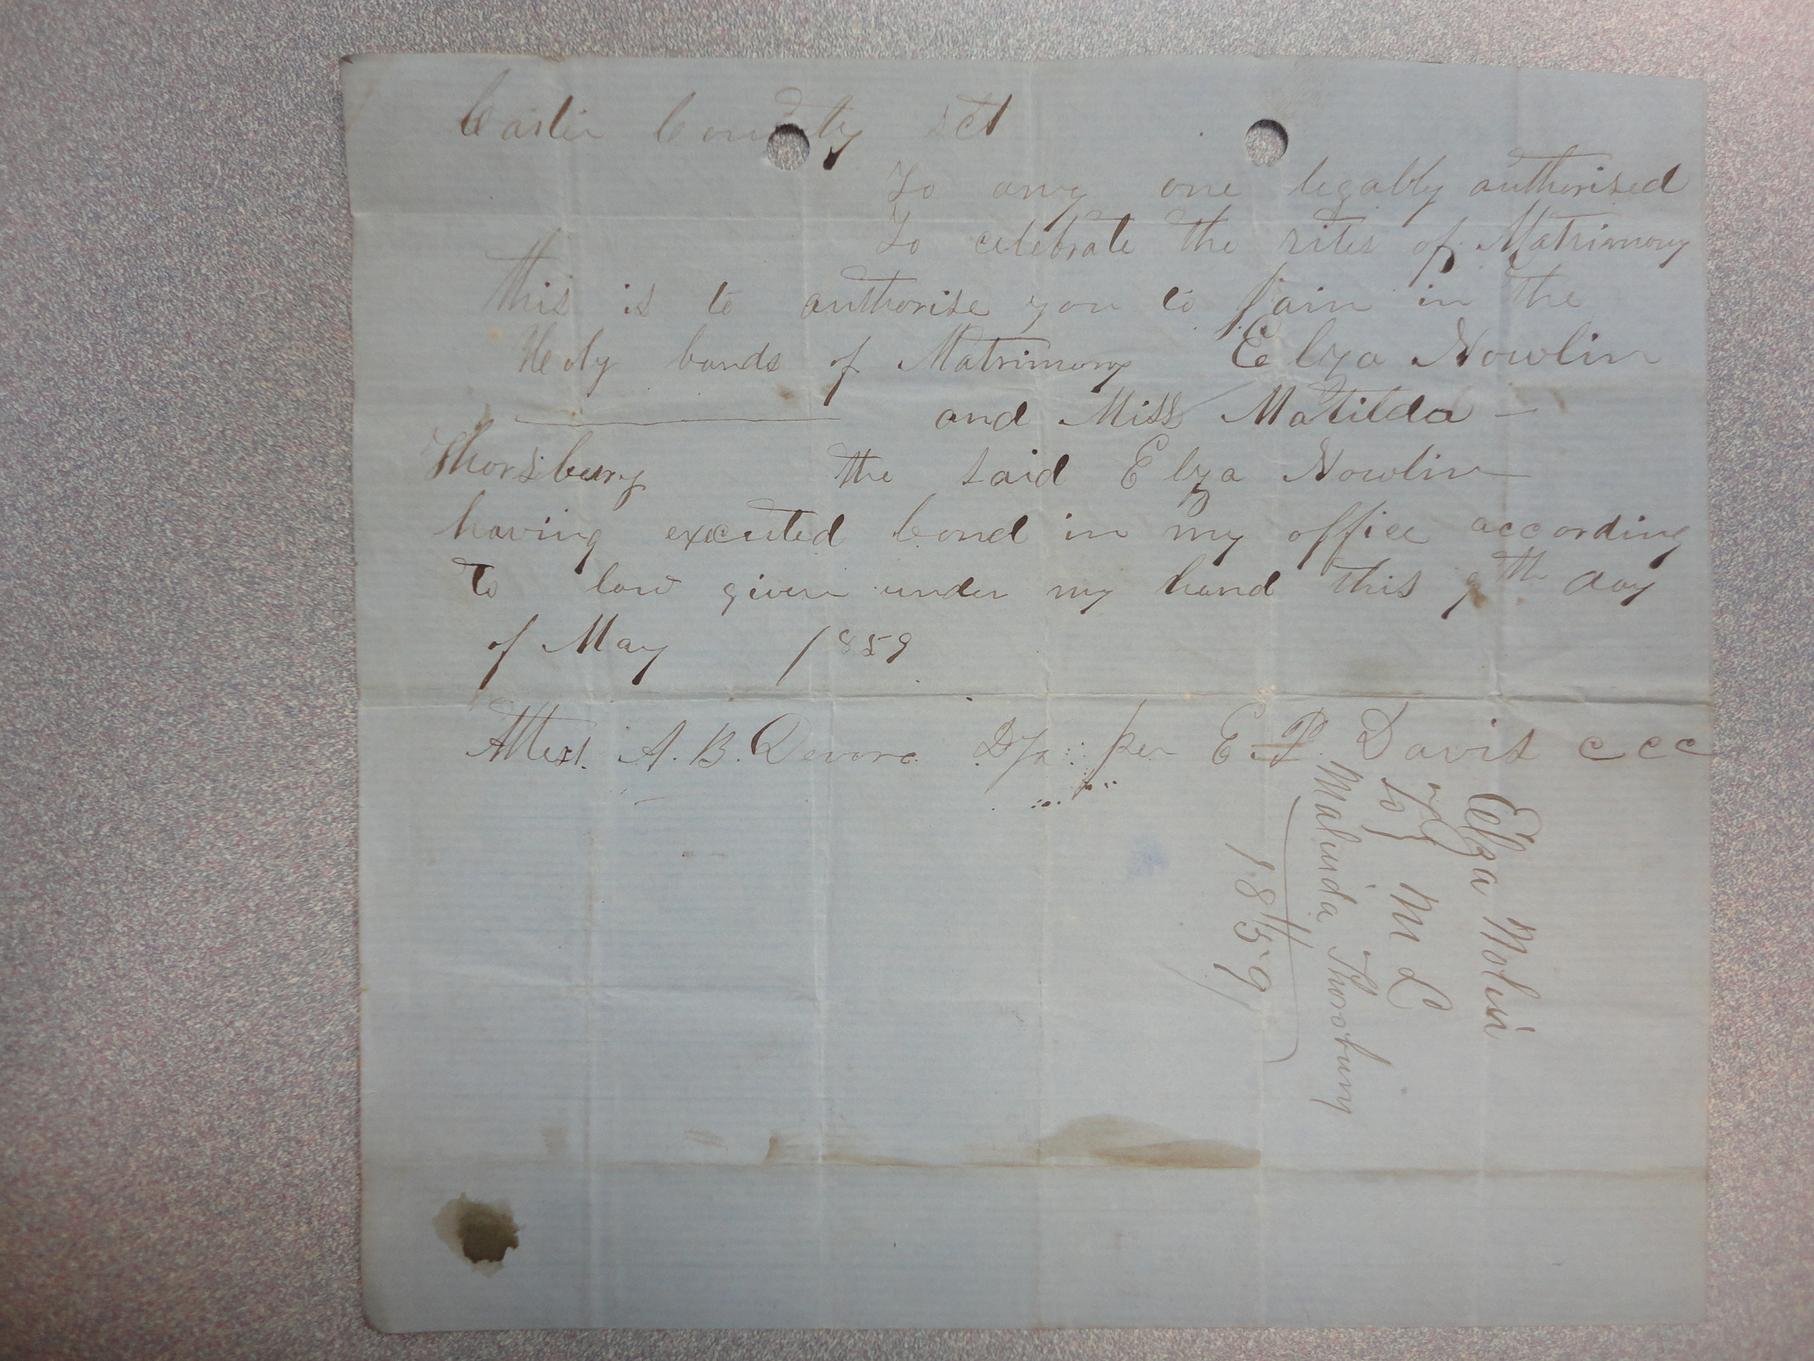 Carter County sct
To any one legally authorised
To celebrate the rites of Matrimony
this is to authorise you to join in the
Holy bands of Matrimony Elza Nowlin
and Miss Matilda
Thorsbury the said Elza Nowlin
having excuted bond in my office according
to law given under my hand this 9th day
of May 1859
Attest. A. B. Devore per E. P. Davis C C C
Elza Nolin
To } M L
Malinda Thorsbury
1859